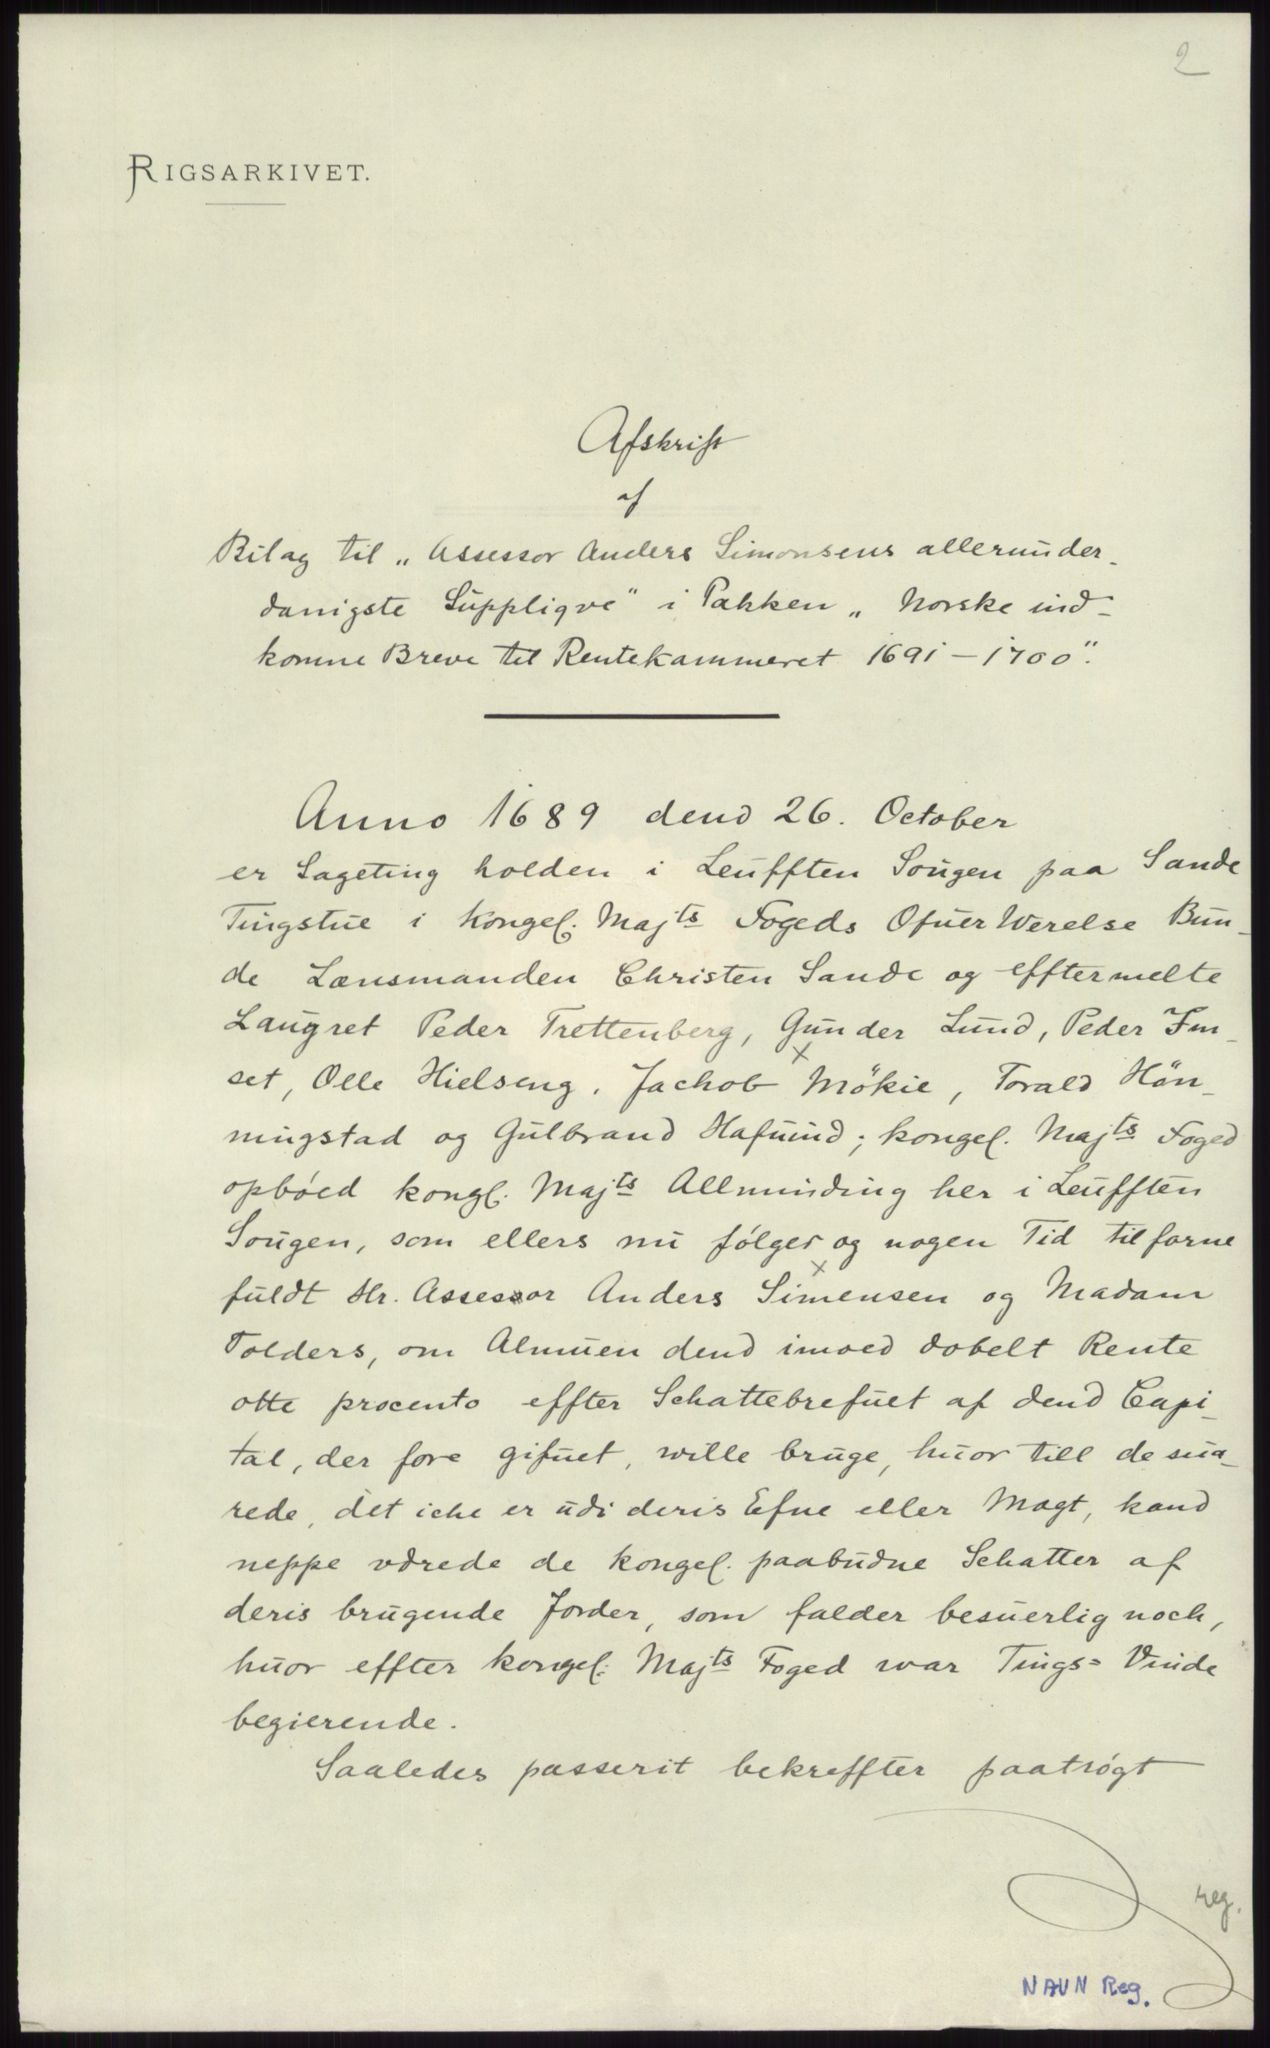 2
RIGSARKIVET.
Afskrift
af
Bilag til „Assessor Anders Simonsens allerunder-
danigste Süppliqve" i Pakken „Norske ind-
komne Breve til Rentekammeret 1691-1700".
Anno 1689 dend 26. October
er Sageting holden i Leufften Sougen paa Sande
Tingstue i Kongel. Majts Fogeds Ofuer Werelse Bun-
de Lænsmanden Christen Sande og efftermelte
Laugret Peder Trettenberg, Gunder Lund, Peder Im-
set, Olle Hielseng, Jachob Mökie, Torald Hön-
ningstad og Gulbrand Hafuind; kongel. Majts Foged
opbóed kongl. Majts Allminding her i Leufften
Sougen, som ellers nu fölger og nogen Tid tilforne
fuldt Hr. Assessor Anders Simensen og Madam
Tolders, om Almuen dend imoed dobelt Rente
otte procento effter Schattebrefuet af dend Capi-
tal, der fore gifuet, wille bruge, huor till de sua-
rede, det iche er udi deris Efne eller Magt, kand
neppe værede de kongel. paabudne Schatter af
deris brugende Jorder, som falder besuerlig noch,
huor effter kongel. Majts Foged war Tings= Vinde
begierende.
Saaledes passerit bekreffter paatrógt
reg.
NAVN Reg.